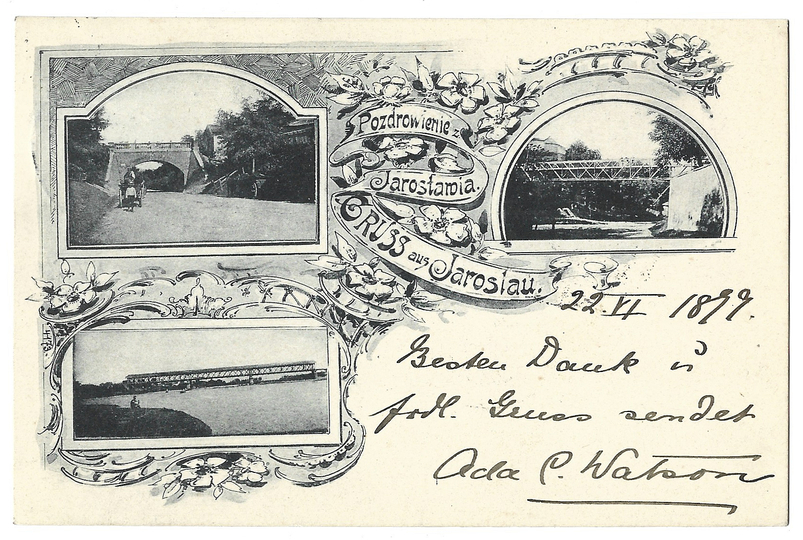 Pozdrowienie z
Jarosławia.
GRUSS aus Jaroslau.
22 VI 1899.
Besten Dank u
frdl. Gruss sendet
Ada C. Watson